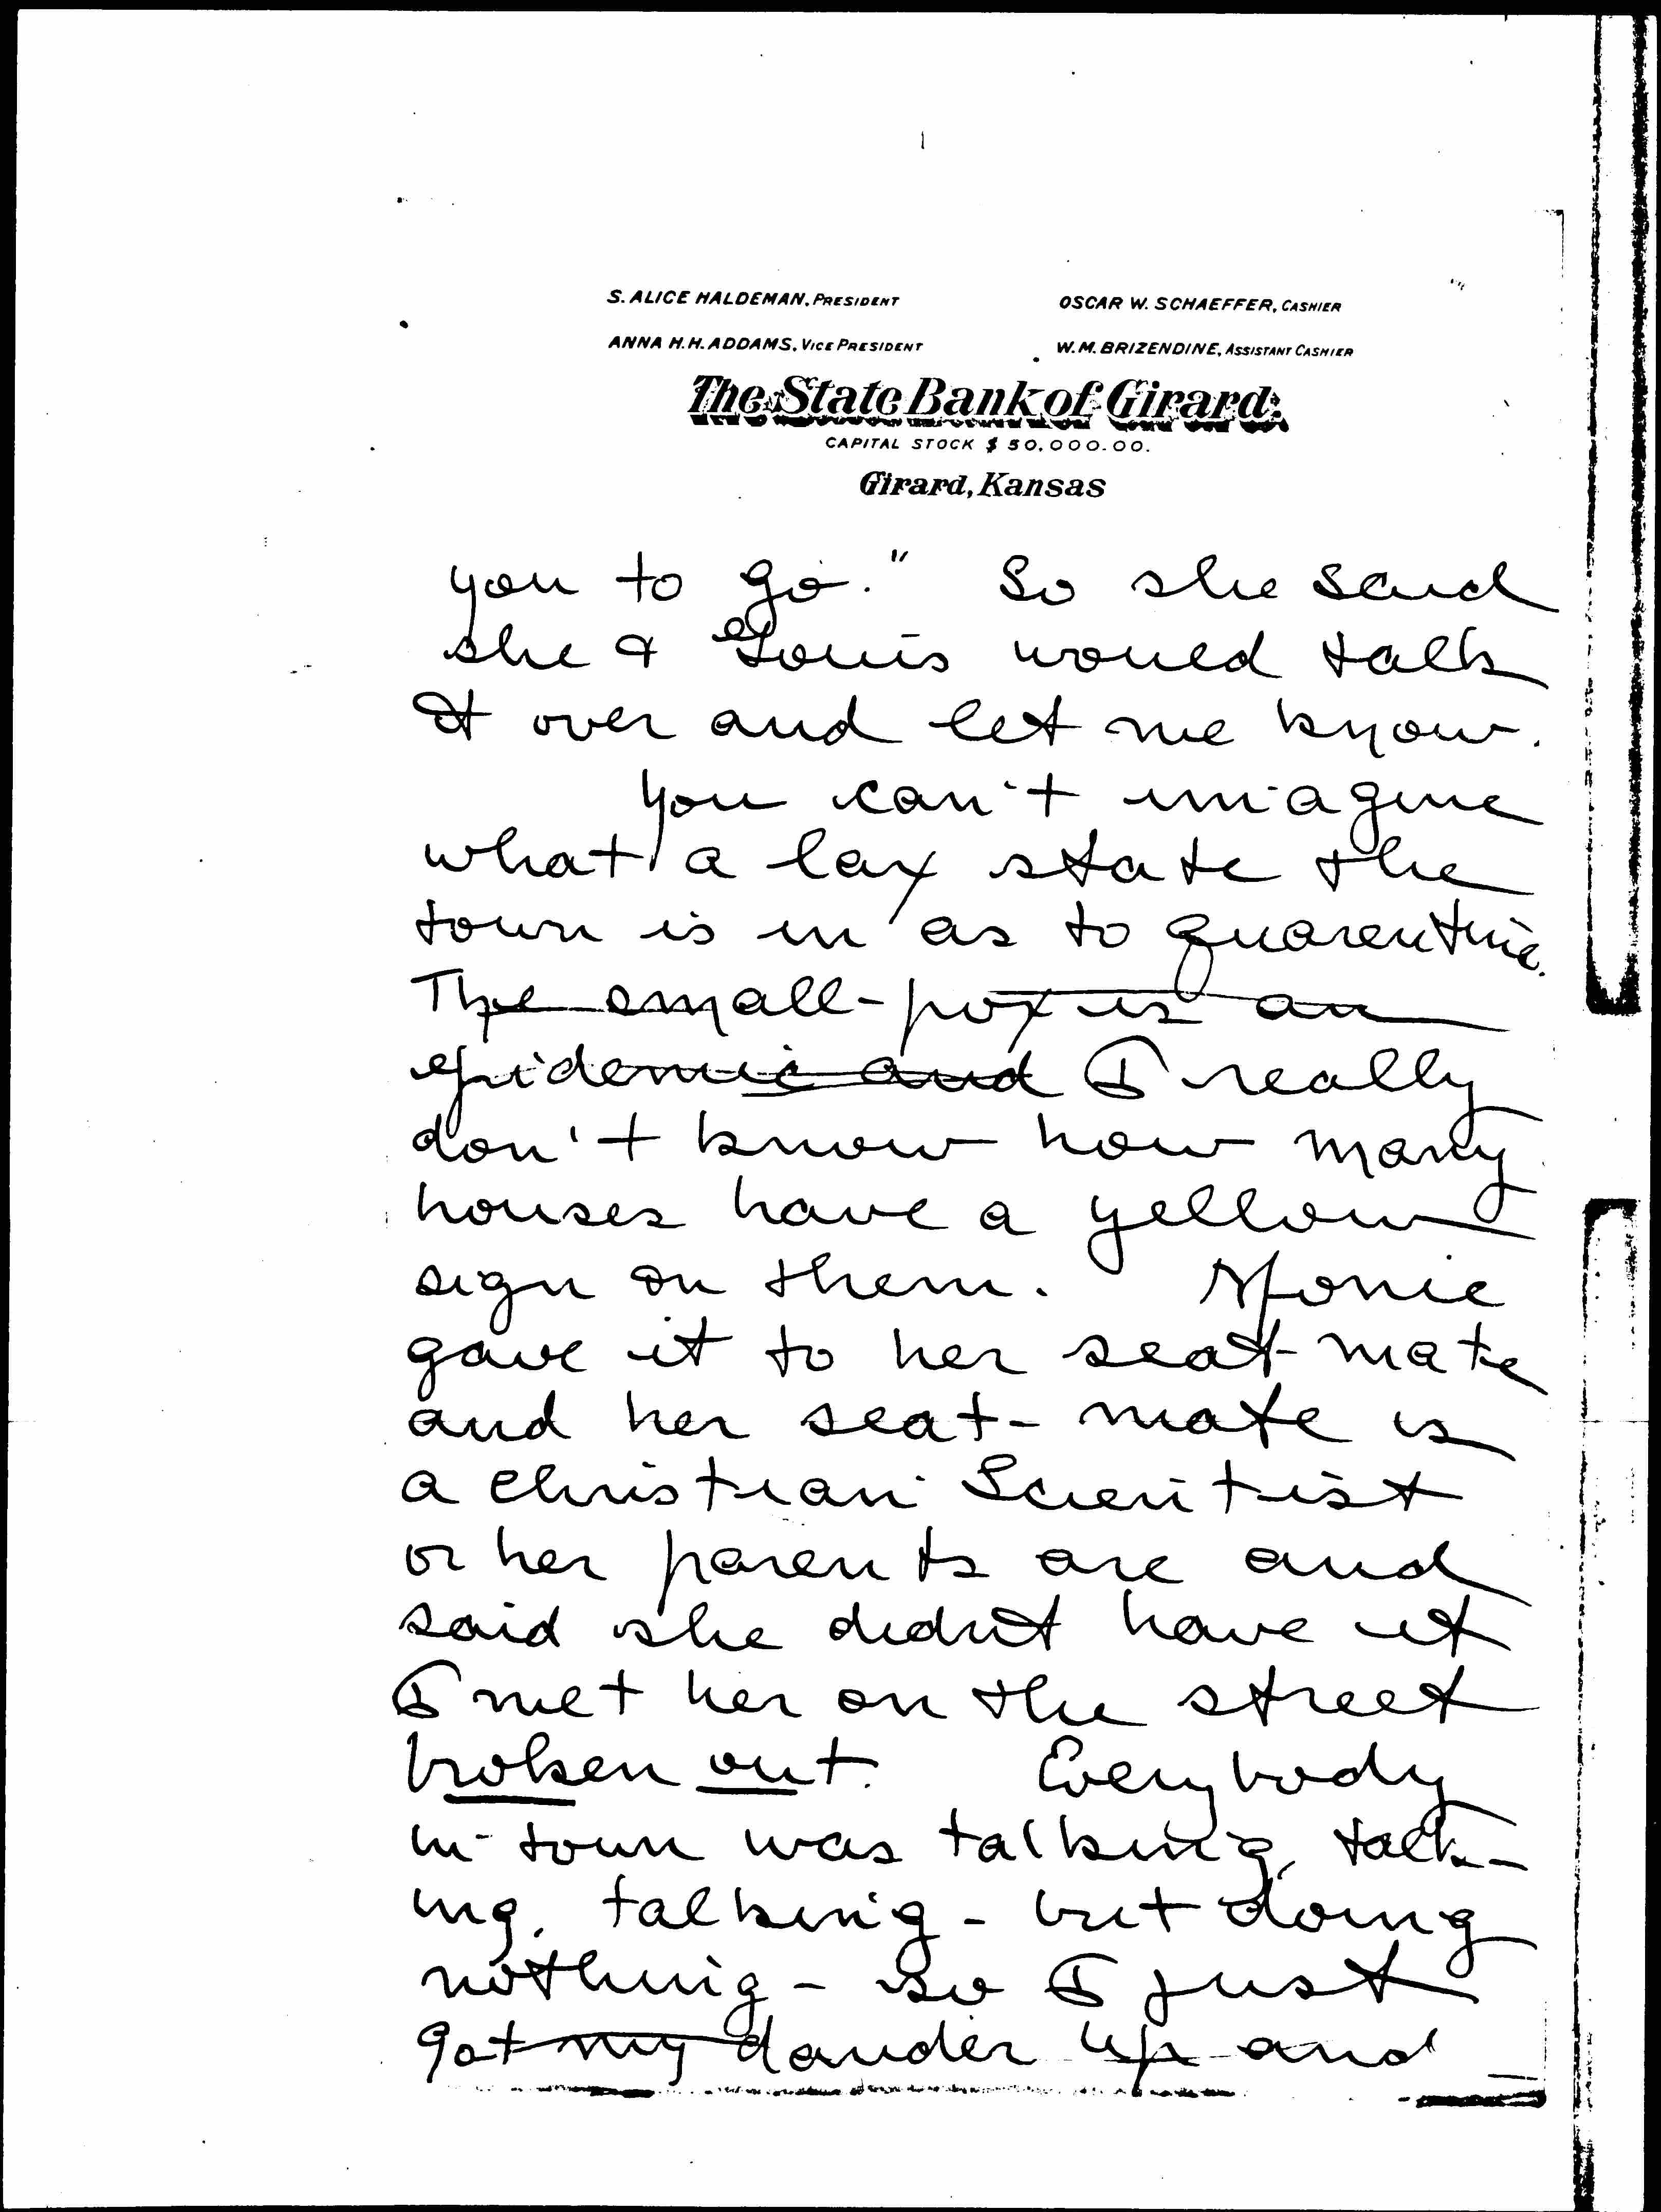 S. ALICE HALDEMAN, PRESIDENT
OSCAR W. SCHAEFFER, CASHIER
ANNA H. H. ADDAMS, VICE PRESIDENT
W. M. BRIZENDINE, ASSISTANT CASHIER
The State Bank of Girard,
CAPITAL STOCK $50,000.00.
Girard, Kansas
you to go." So she said
she & Louis would talk
it over and let me know.
You can't imagine
what a lax state the
town is in as to quarentine.
The small-pox is an
epidemic and I really
don't know how many
houses have a yellow
sign on them. Monie
gave it to her seat-mate
and her seat-mate is
a Christian Scientist
or her parents are and
said she didn't have it
I met her on the street
broken out. Everybody
in town was talking, talk-
ing, talking - but doing
nothing - so I just
got my dander up and